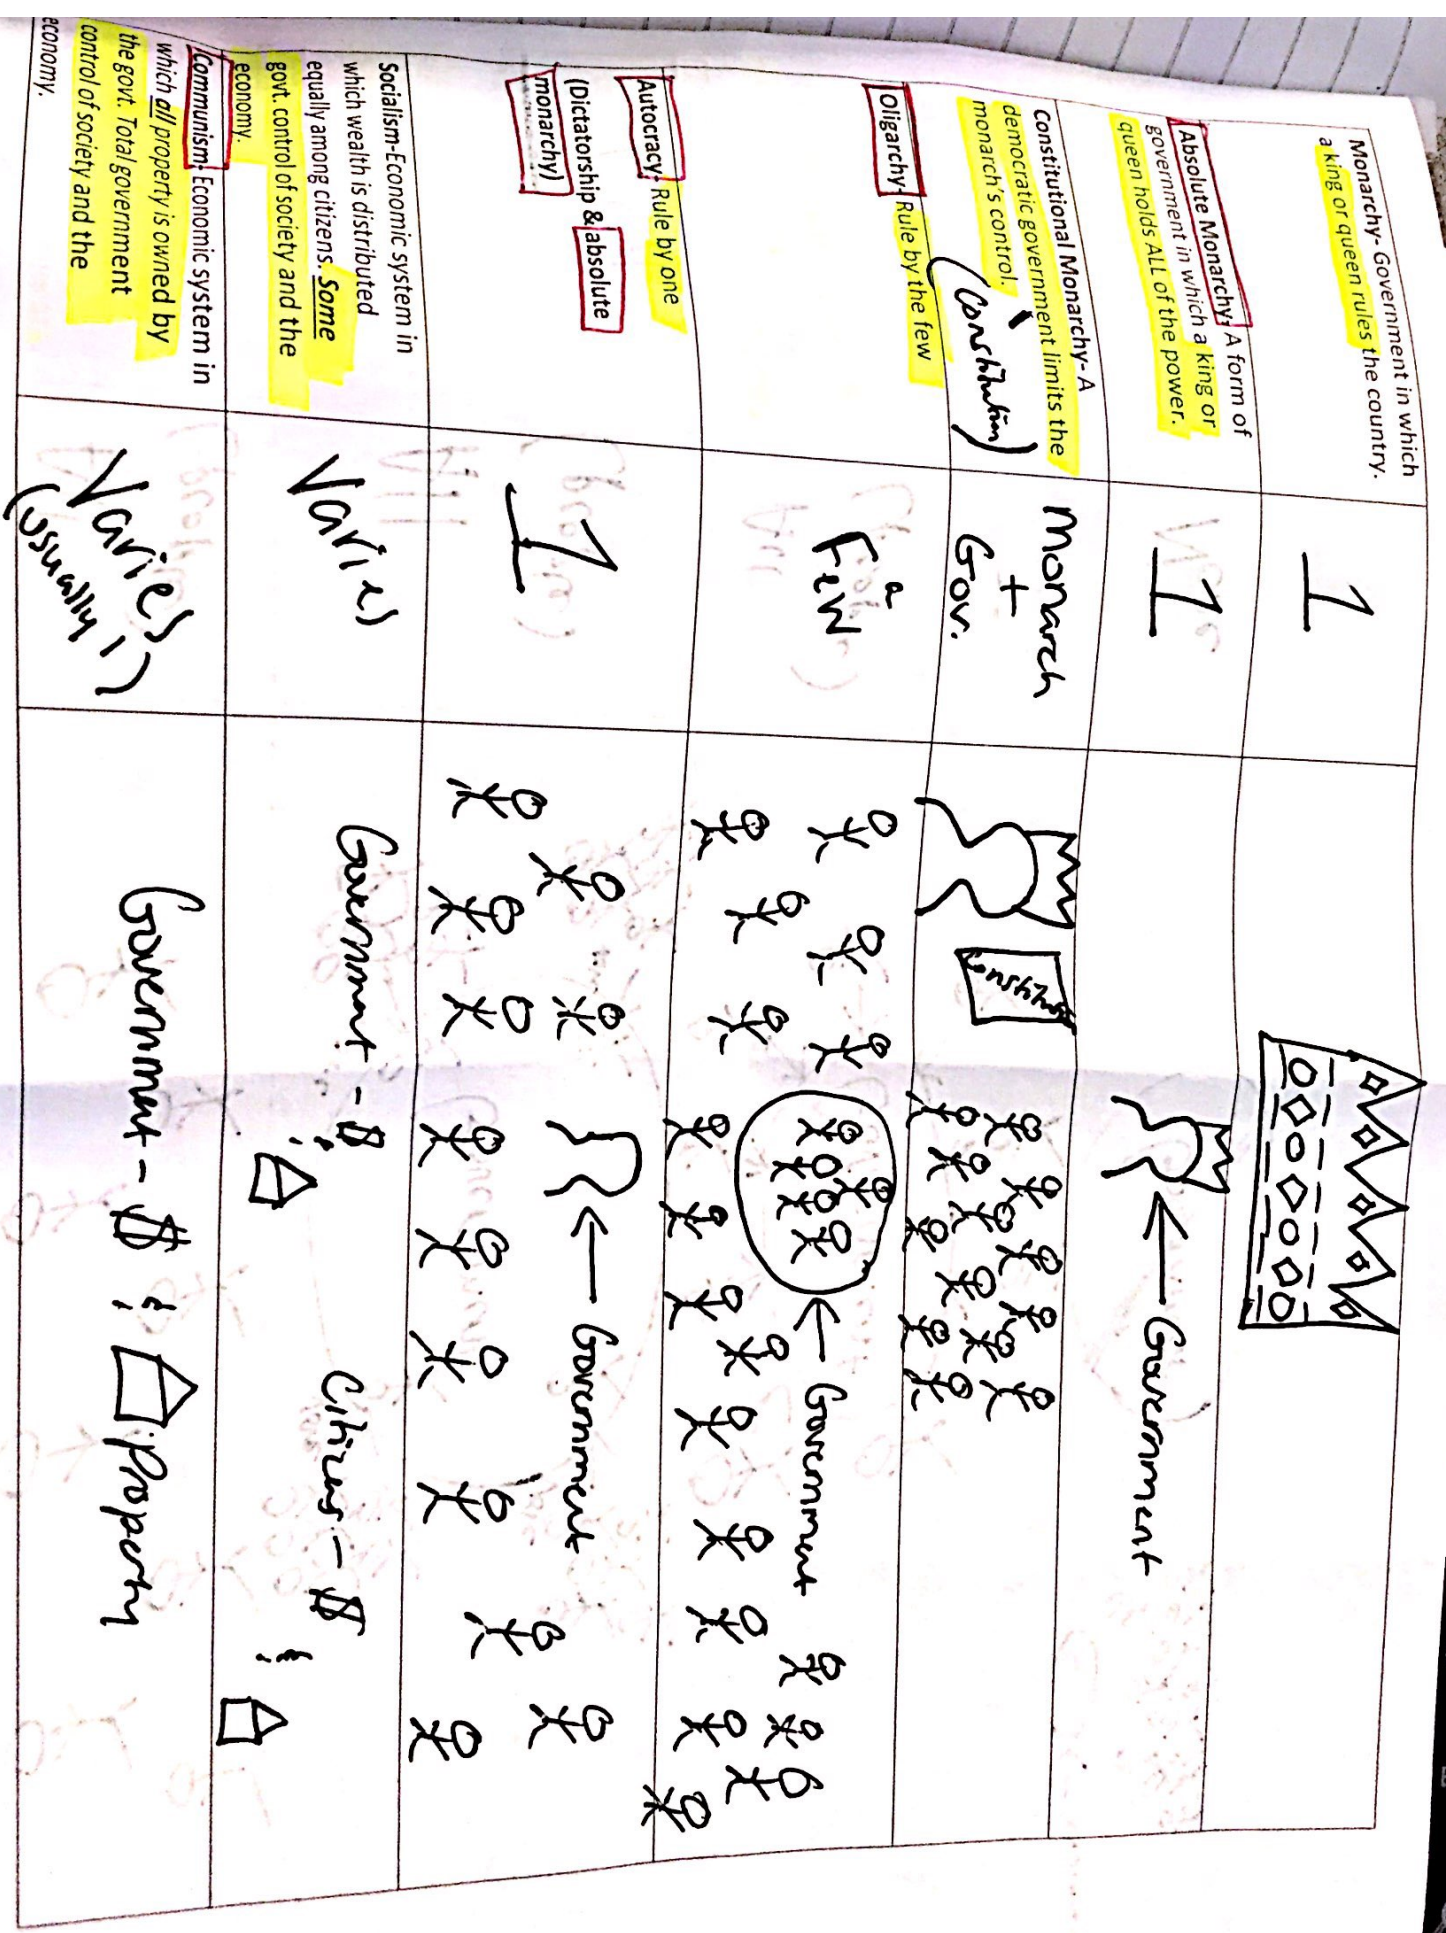 Monarchy- Government in which
a king or queen rules the country.
1
Absolute Monarchy: A form of
government in which a king or
queen holds ALL of the power.
1
Government
Constitutional Monarchy- A
democratic government limits the
monarch's control.
(Constitution)
Monarch
+
Gov.
Oligarchy- Rule by the few
a
Few
Government
Autocracy: Rule by one
(Dictatorship & absolute
monarchy)
1
Government
Socialism-Economic system in
which wealth is distributed
equally among citizens. Some
govt. control of society and the
economy.
Varies
Government - $
&
Citizens - $
&
Communism- Economic system in
which all property is owned by
the govt. Total government
control of society and the
economy.
Varies
(usually 1)
Government - $ & Property